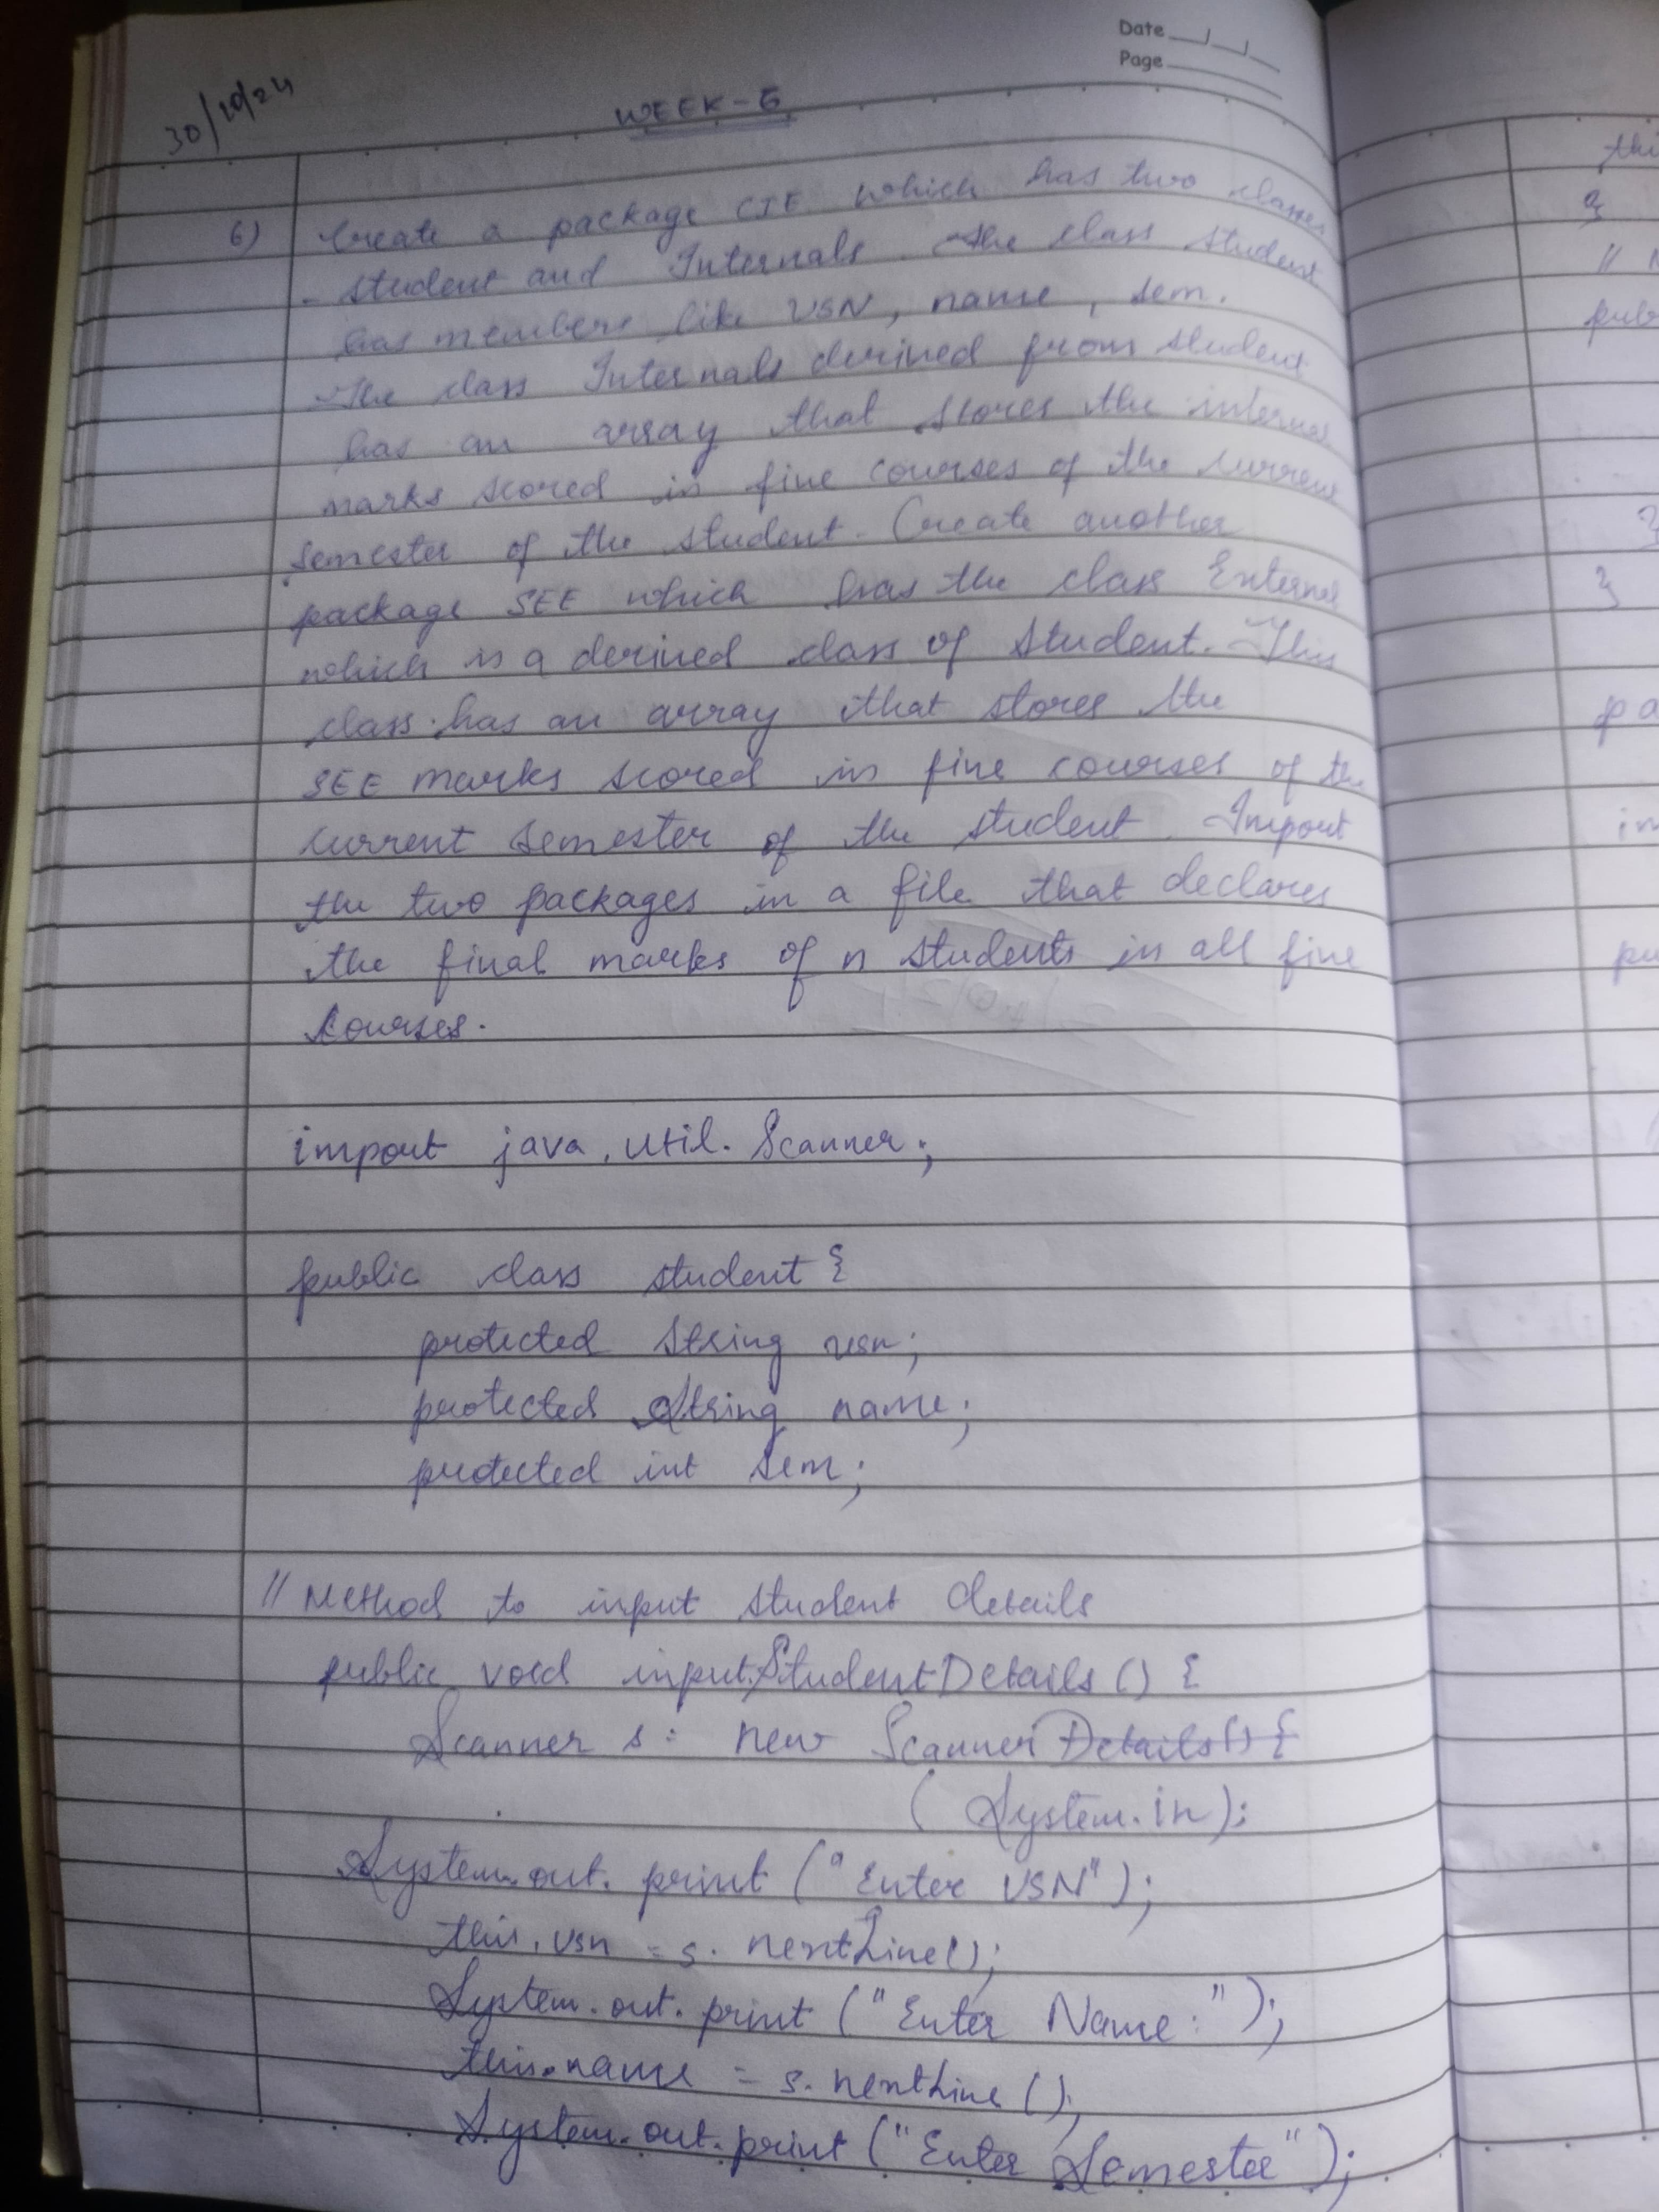 Date
Page
30/10/24
WEEK-6
6) Create a package CIE which has two classes
- Student and Internals. The class Student
has members like USN, name, sem.
The class Internals derived from student
has an array that stores the internal
marks scored in five courses of the current
semester of the student. Create another
package SEE which has the class External
which is a derived class of Student. This
class has an array that stores the
SEE marks scored in five courses of the
current semester of the student. Import
the two packages in a file that declares
the final marks of n students in all five
courses.
import java.util.Scanner;
public class student {
protected String usn;
protected String name;
protected int sem;
// Method to input student details
public void inputStudentDetails () {
Scanner s = new Scanner Details() {
(System.in);
System.out.print ("Enter USN");
this.usn = s.nextLine();
System.out.print ("Enter Name:");
this.name = s.nextLine();
System.out.print ("Enter Semester");
thi
}
//
pub
}
}
pa
im
pu